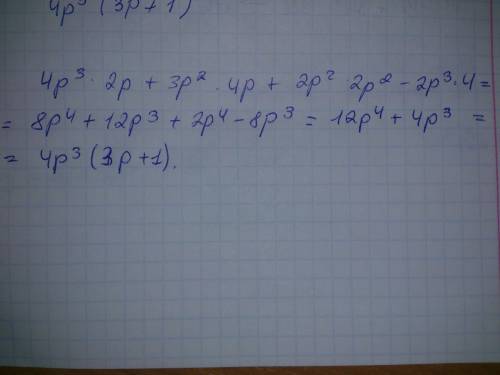 4p³ (3p+1)
4p³ · 2p + 3p² · 4p + 2p² · 2p² - 2p³ · 4 =
= 8p⁴ + 12p³ + 2p⁴ - 8p³ = 12p⁴ + 4p³ =
= 4p³ (3p+1).